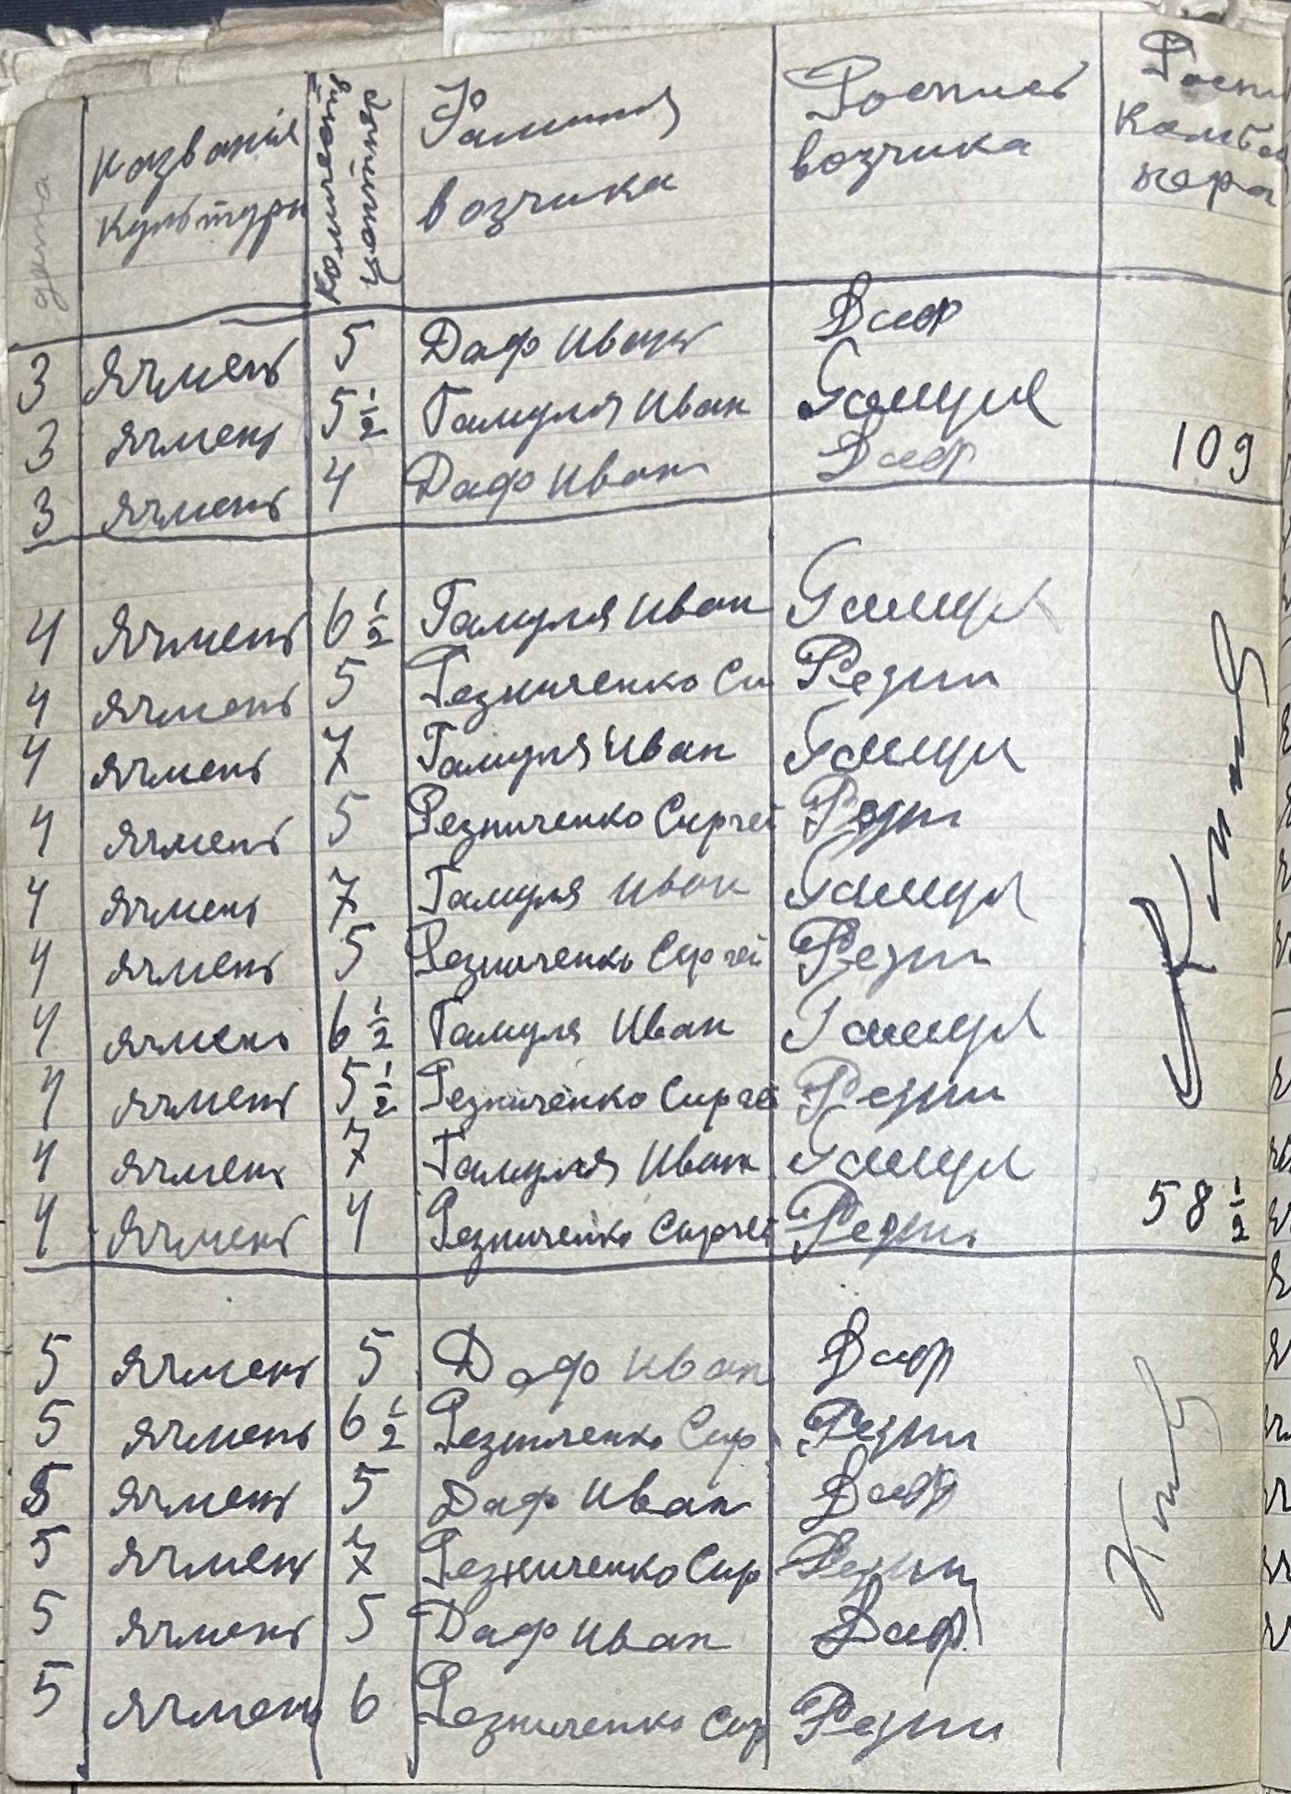 дата
Названия
культуры
Количество
бункиров
в
Фамилия
возчика
Роспись
возчика
Роспи
комбай
нера
3 ячмень 5 Даф Иван Даф
3 ячмень 5 1/2 Гамуля Иван Гамуля
3 ячмень 4 Даф Иван Даф 109
4 ячмень 6 1/2 Гамуля Иван Гамул
4 ячмень 5 Резниченко Си Резни
4 ячмень 7 Гамуля Иван Гамул
4 ячмень 5 Резниченко Сиргей Резни
4 ячмень 7 Гамуля Иван Гамул
4 ячмень 5 Резниченко Сиргей Резни
4 ячмень 6 1/2 Гамуля Иван Гамул
4 ячмень 5 1/2 Резниченко Сиргей Резни
4 ячмень 7 Гамуля Иван Гамул
4 ячмень 4 Резниченко Сиргей Резни 58 1/2
5 ячмень 5 Даф Иван Даф
5 ячмень 6 1/2 Резниченко Сир Резни
5 ячмень 5 Даф Иван Даф
5 ячмень 7 Резниченко Сир Резни
5 ячмень 5 Даф Иван Даф
5 ячмень 6 Резниченко Сир Резни